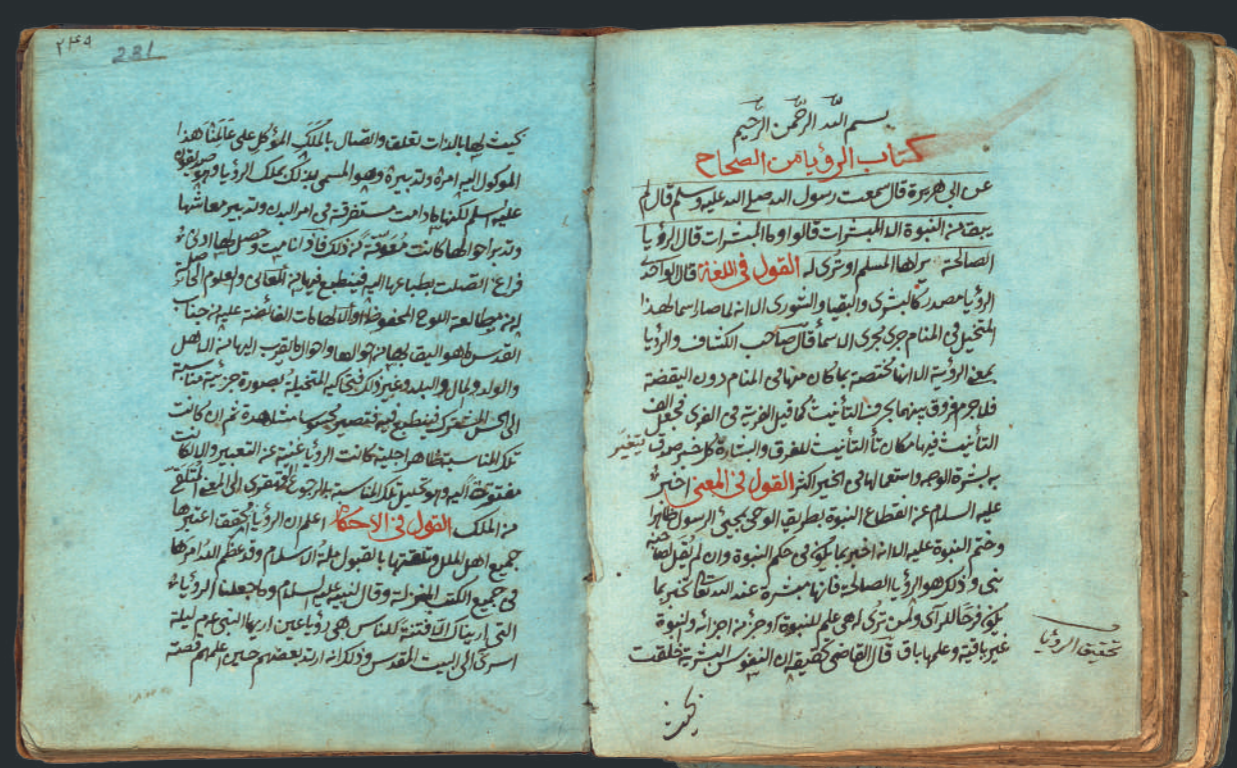 بسم الله الرحمن الرحيم
كتاب الرؤيا من الصحاح
عن ابى هريرة قال سمعت رسول الله صلى الله عليه وسلم قال لم
يبق من النبوة الا المبشرات قالوا وما المبشرات قال الرؤيا
الصالحة يراها المسلم او ترى له القول فى اللغة قال الواحدى
الرؤيا مصدر كالبشرى والبقيا والشورى الا انه لما صار اسما لهذا
المتخيل فى المنام جرى مجرى الاسماء قال صاحب الكشاف والرؤيا
بمعنى الرؤية الا انها مختصة بما كان منها فى المنام دون اليقضة
فلا جرم فروق بينهما بحرف التأنيث كما قيل القربة فى القربى فجعل الف
التأنيث فيها مكان تأ التأنيث للفرق والبشارة كل خبر صدق يتغير
به بشرة الوجه واستعمالها فى الخير اكثر القول فى المعنى اخبر
عليه السلام عن انقطاع النبوة بطريق الوحى بمجيئ الرسول ظاهرا
وختم النبوة عليه الا انه اخبر بما يكون فى حكم النبوة وان لم يقل لصاحبه
نبى وذلك هو الرؤيا الصالحة فانها مبشرة عند الله تعالى تخبر بما
يكون فرحا للرآى ولمن ترى له وهى علم للنبوة او جزء من اجزائه والنبوة
غير باقية وعلمها باق قال القاضى تحقيقه ان النفوس البشرية خلقت
تحقيق الرؤيا
بحيث
٢٤٥
281
بحيث لها بالذات تعلق واتصال بالملك المؤكل على عالمنا هذا
الموكول اليه امره وتدبيره وهو المسمى بملك الرؤيا
عليه السلام لكنها مادامت مستغرقة فى امر البدن وتدبير معاشها
وتدبر احوالها كانت معوقة من ذلك فاذا نامت وحصل لها ادنى
فراغ اتصلت بطباعها اليه فينطبع فيها من المعانى والعلوم
من مطالعة اللوح المحفوظ والالهامات الفائضة عليه من جناب
القدس ما هو اليق بها من احوالها واحوال ما يقرب اليها من الاهل
والولد والمال والبلد وغير ذلك فتحاكيه المتخيلة بصورة جزئية مناسبة
الى الحس المشترك فينطبع فيه فتصير محسوسا مشاهدة ثم ان كانت
تلك المناسبة ظاهر اجلية كانت الرؤيا غنية عن التعبير والا كانت
مفتوحة اليه وهو تحليل تلك المناسبة بالرجوع الى المعنى المتلقى
من الملك القول فى الاحكام اعلم ان الرؤيا حق اعتبرها
جميع اهل الملل وتلقتها بالقبول ملة الاسلام وقد عظم الله امرها
فى جميع الكتب المنزلة وقال النبى عليه السلام وما جعلنا الرؤيا
التى اريناك الا فتنة للناس هى رؤيا عين اريها النبى عم ليلة
اسرى الى البيت المقدس وذلك انه ارتد بعضهم حين اعلمهم قصته